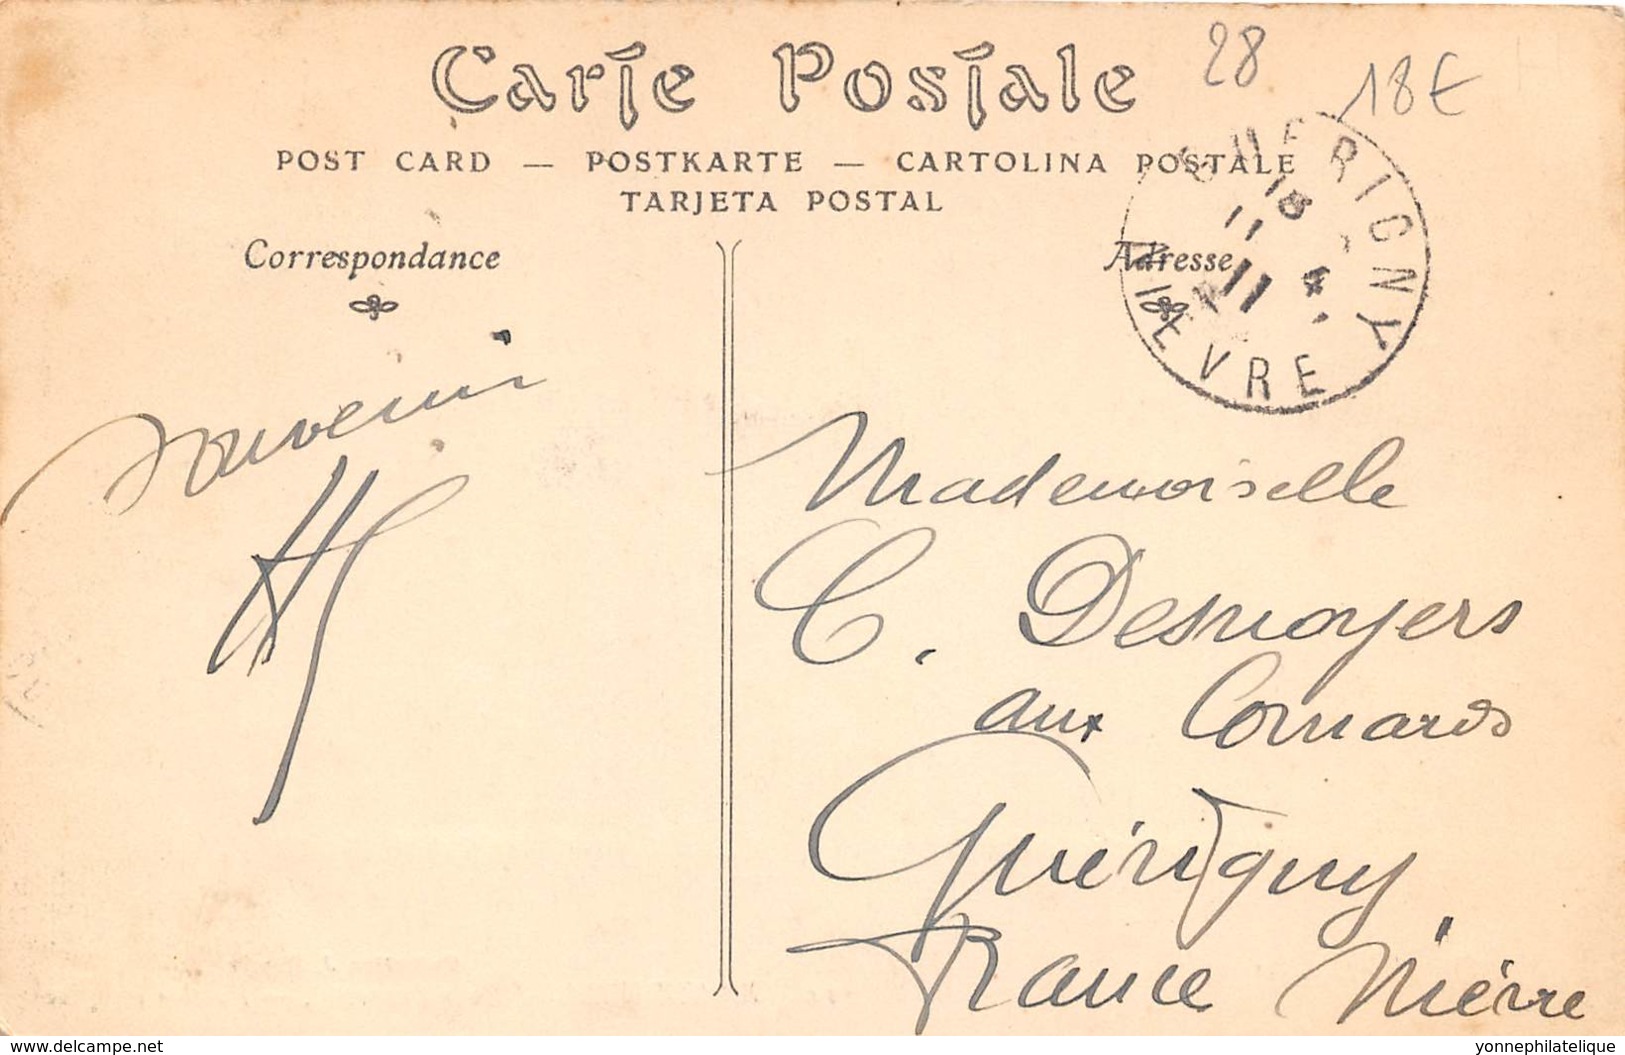 28
18€
Carte Postale
POST CARD — POSTKARTE — CARTOLINA POSTALE
TARJETA POSTAL
GUERIGNY
NIEVRE
Correspondance
Adresse
souvenir
Mademoiselle
C. Desmoyers
aux Cornards
Guérigny
France Nièvre
www.delcampe.net
yonnephilatelique